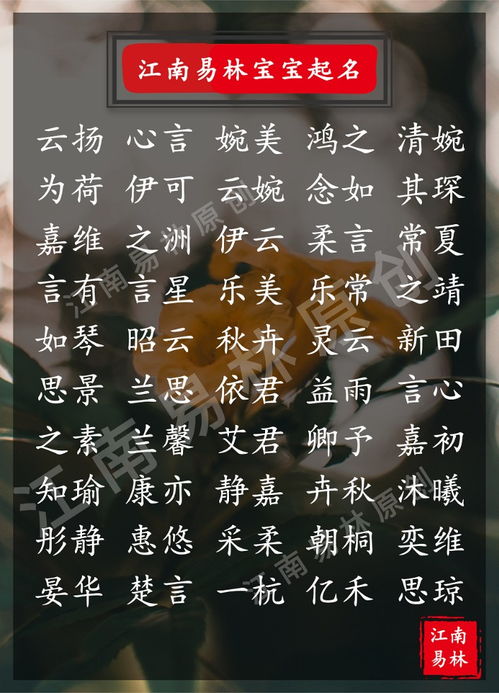 江南易林宝宝起名
云扬 心言 婉美 鸿之 清婉
为荷 伊可 云婉 念如 其琛
嘉维 之洲 伊云 柔言 常夏
言有 言星 乐美 乐常 之靖
如琴 昭云 秋卉 灵云 新田
思景 兰思 依君 益雨 言心
之素 兰馨 艾君 卿予 嘉初
知瑜 康亦 静嘉 卉秋 沐曦
彤静 惠悠 采柔 朝桐 奕维
晏华 楚言 一杭 亿禾 思琼
江南
易林
江南易林原创
江南易林原创
江南易林原创